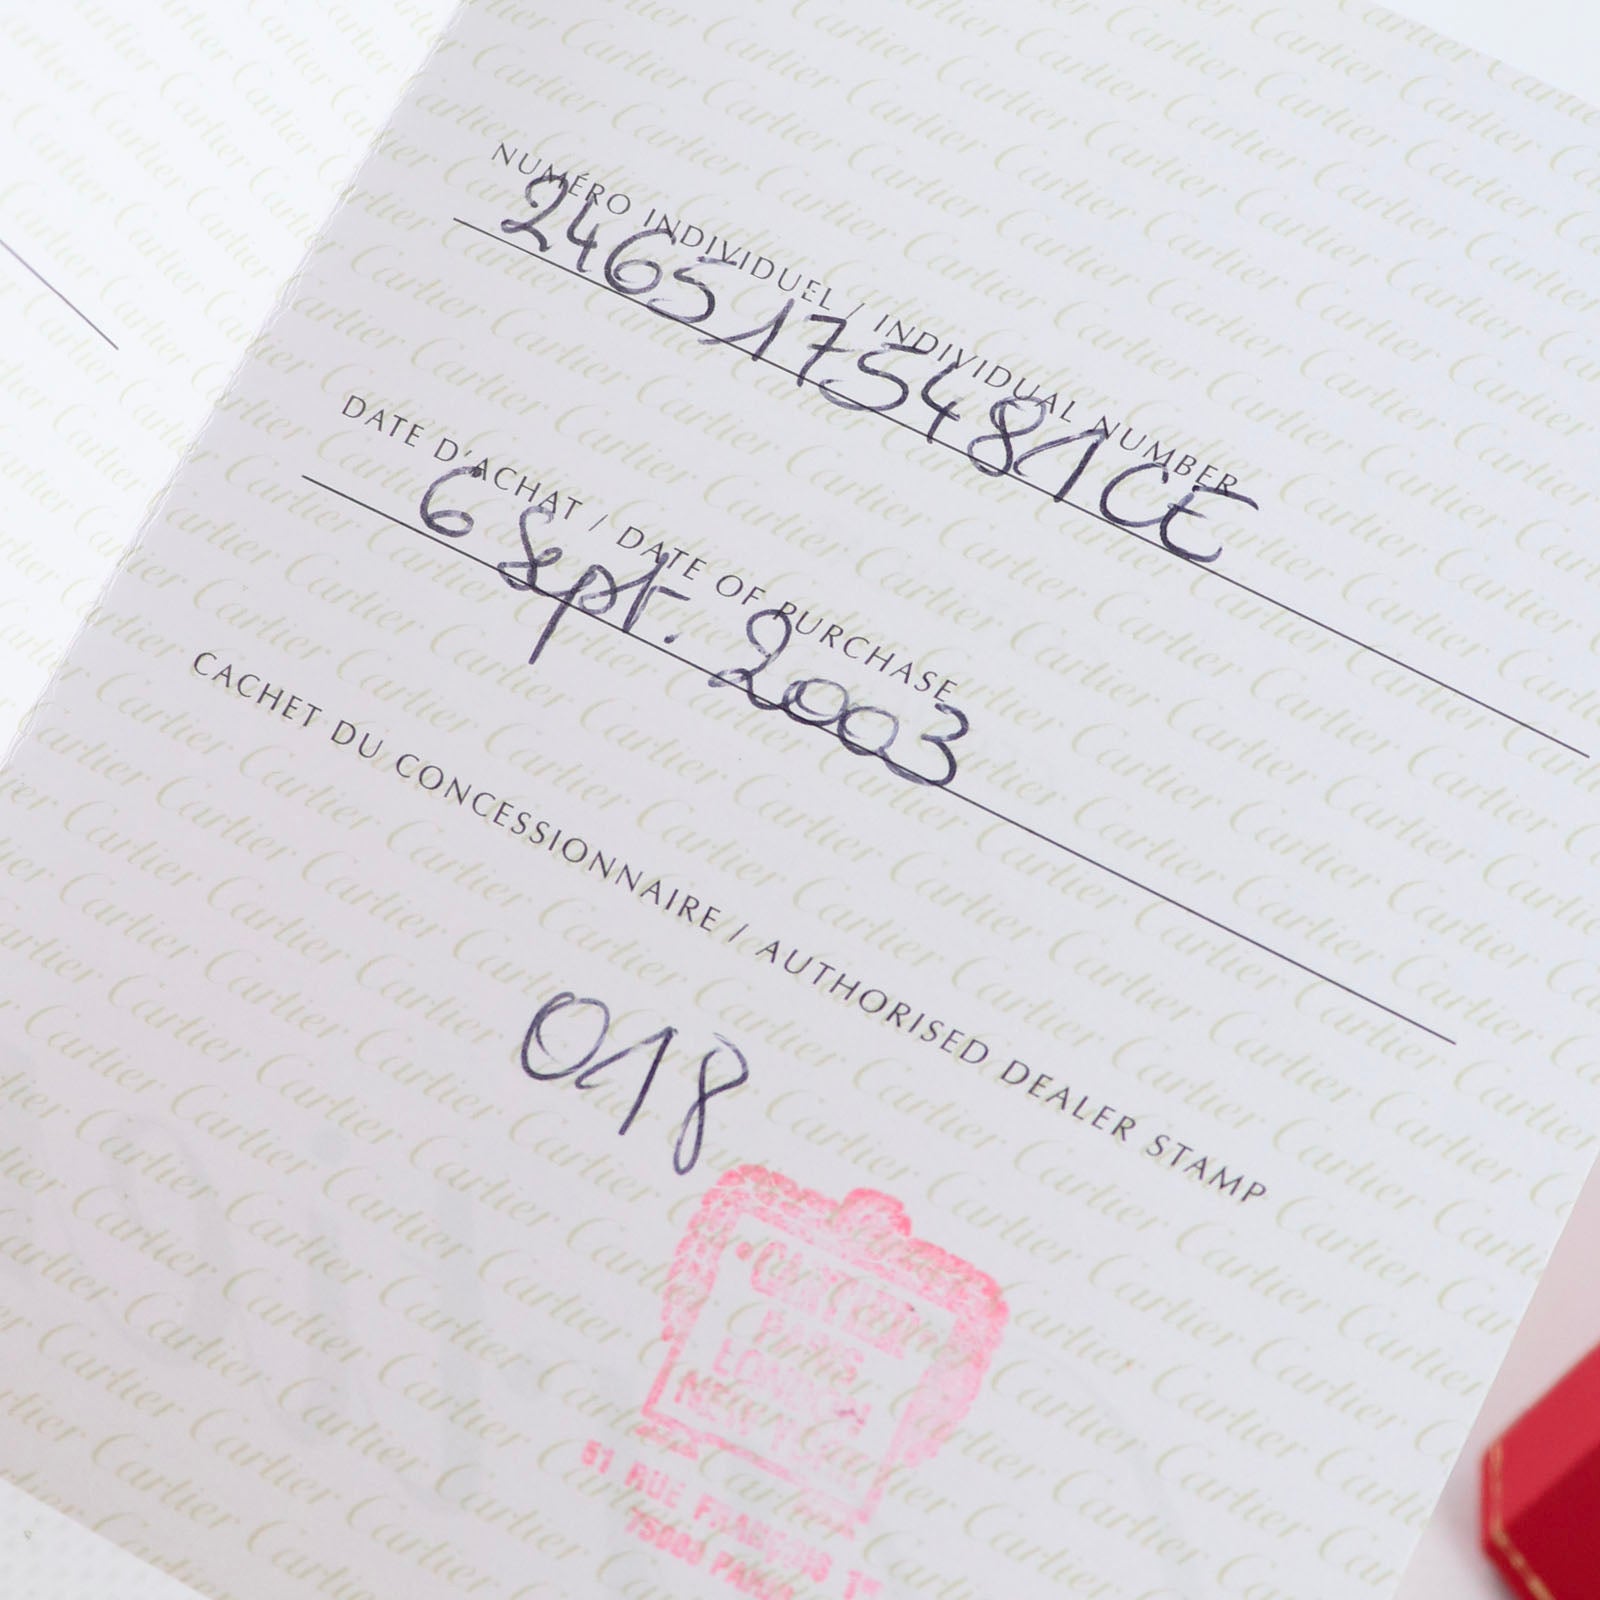 NUMÉRO INDIVIDUEL / INDIVIDUAL NUMBER
246517 5481CE
DATE D'ACHAT / DATE OF PURCHASE
6 Sept. 2003
CACHET DU CONCESSIONNAIRE / AUTHORISED DEALER STAMP
018
Cartier
PARIS
LONDON
NEW
51 RUE FRANÇOIS 1er
75008 PARIS